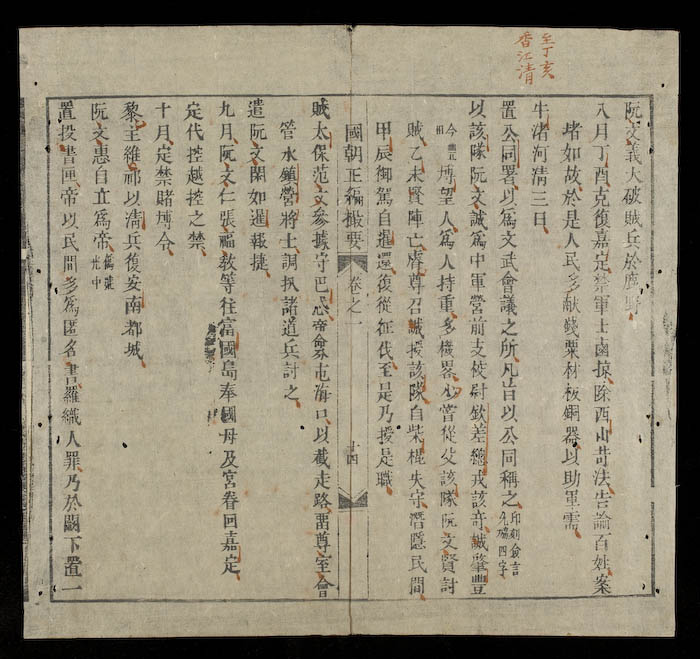 至丁亥
香江清
阮文義大破賊兵於鹿野
八月丁酉克復嘉定禁軍士鹵掠除西山苛法告諭百姓案
堵如故於是人民多献錢粟材板銅器以助軍需
牛渚河清三日
置公同署以爲文武會議之所凡旨以公同稱之印刻僉言允礪四字
以該隊阮文誠爲中軍營前支校尉欽差總戎該奇誠肇豐
今豐田博望人爲人持重多機畧少嘗從父該隊阮文賢討
賊乙未賢陣亡睿尊召誠授該隊自柴棍失守潛隱民間
甲辰御駕自暹還復從征伐至是乃授是職
國朝正編撮要 卷之一 十四
賊太保范文參據守巴忒帝命屯海口以截走路畱尊室會
管水鎮營將士調扒諸道兵討之
遣阮文閑如暹報捷
九月阮文仁張福教等往富國島奉國母及宮眷回嘉定
定代控越控之禁
十月定禁賭博令
黎主維祁以淸兵復安南都城
阮文惠自立爲帝僞號光中
置投書匭帝以民間多爲匿名書羅織人罪乃於闕下置一